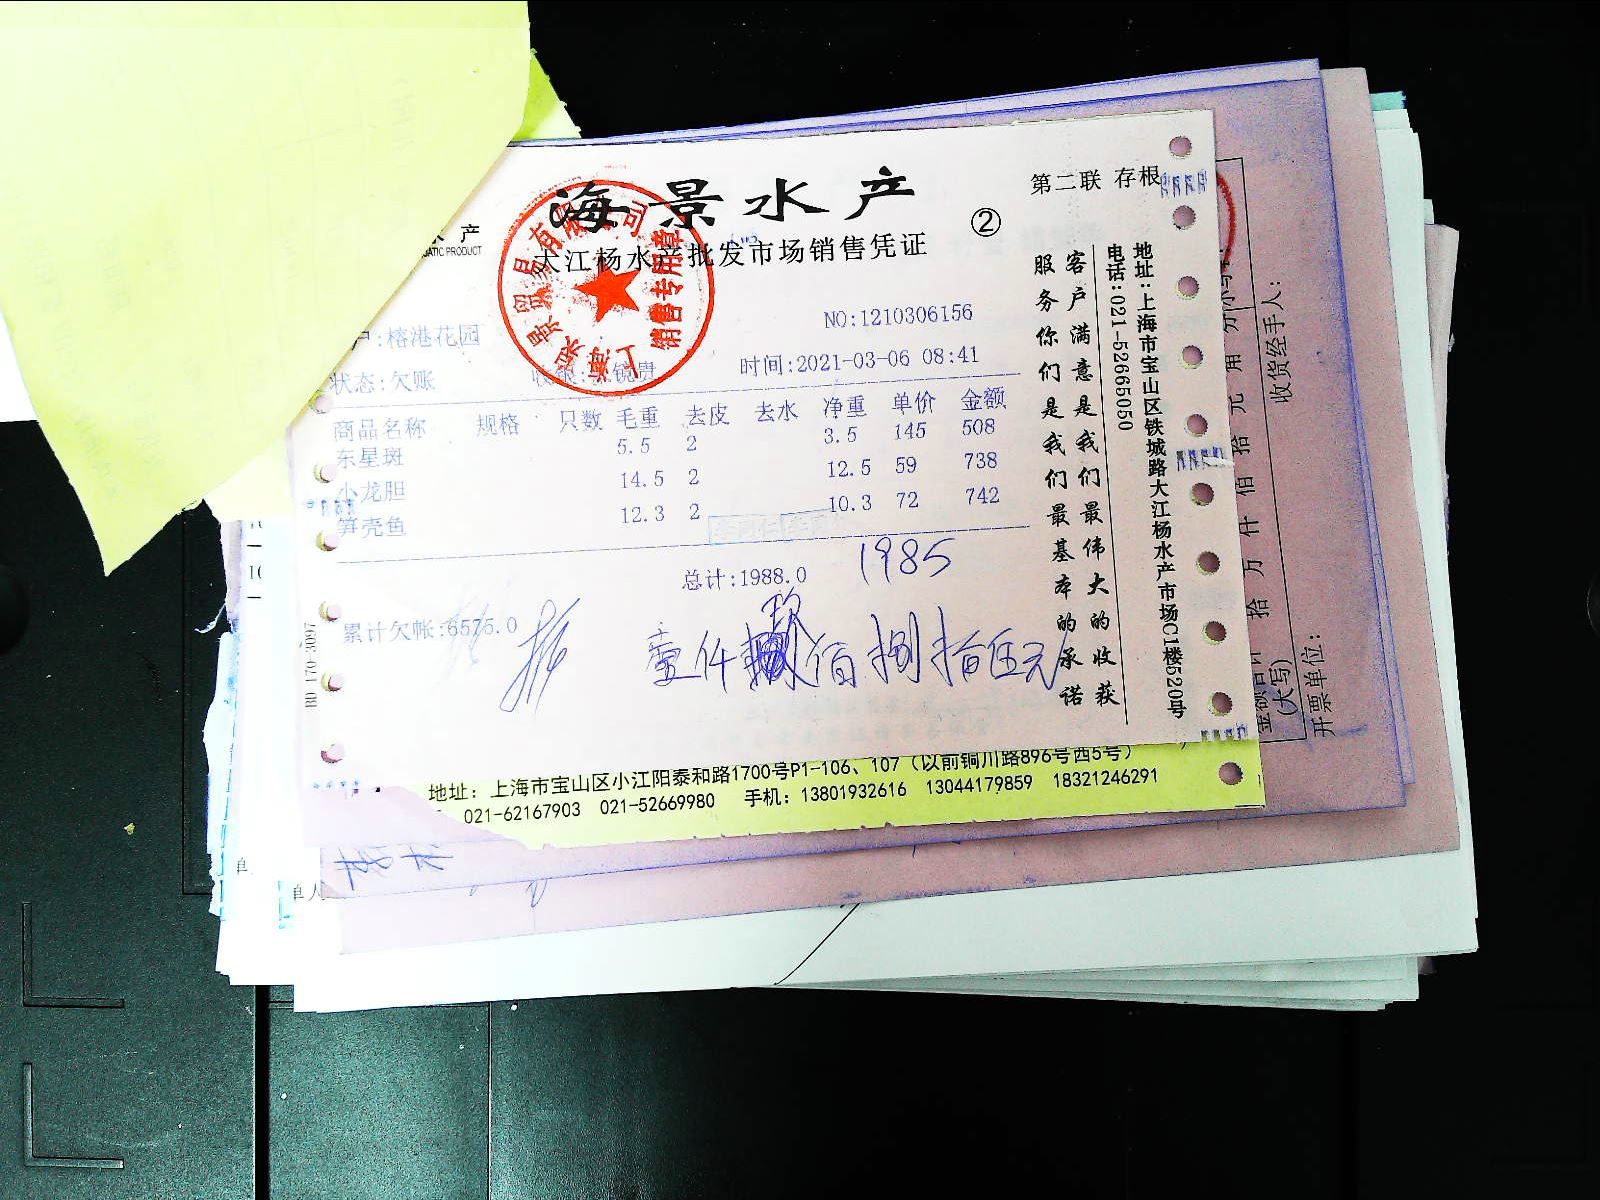 海景水产
第二联 存根
②
水产
ATIC PRODUCT
大江杨水产批发市场销售凭证
销售专用章
NO:1210306156
户:榕港花园
时间:2021-03-06 08:41
状态:欠账
商品名称 规格 只数 毛重 去皮 去水 净重 单价 金额
东星斑 5.5 2 3.5 145 508
小龙胆 14.5 2 12.5 59 738
笋壳鱼 12.3 2 10.3 72 742
总计:1988.0
1985
累计欠帐:6575.0
壹仟玖佰捌拾伍元
客户满意是我们最伟大的收获
服务你们是我们最基本的承诺
地址:上海市宝山区铁城路大江杨水产市场C1楼520号
电话:021-52665050
BD 170-3097
地址:上海市宝山区小江阳泰和路1700号P1-106、107(以前铜川路896号西5号)
021-62167903 021-52669980 手机:13801932616 13044179859 18321246291
收货经手人:
拾万仟佰拾元角分
(大写)
开票单位:
单人